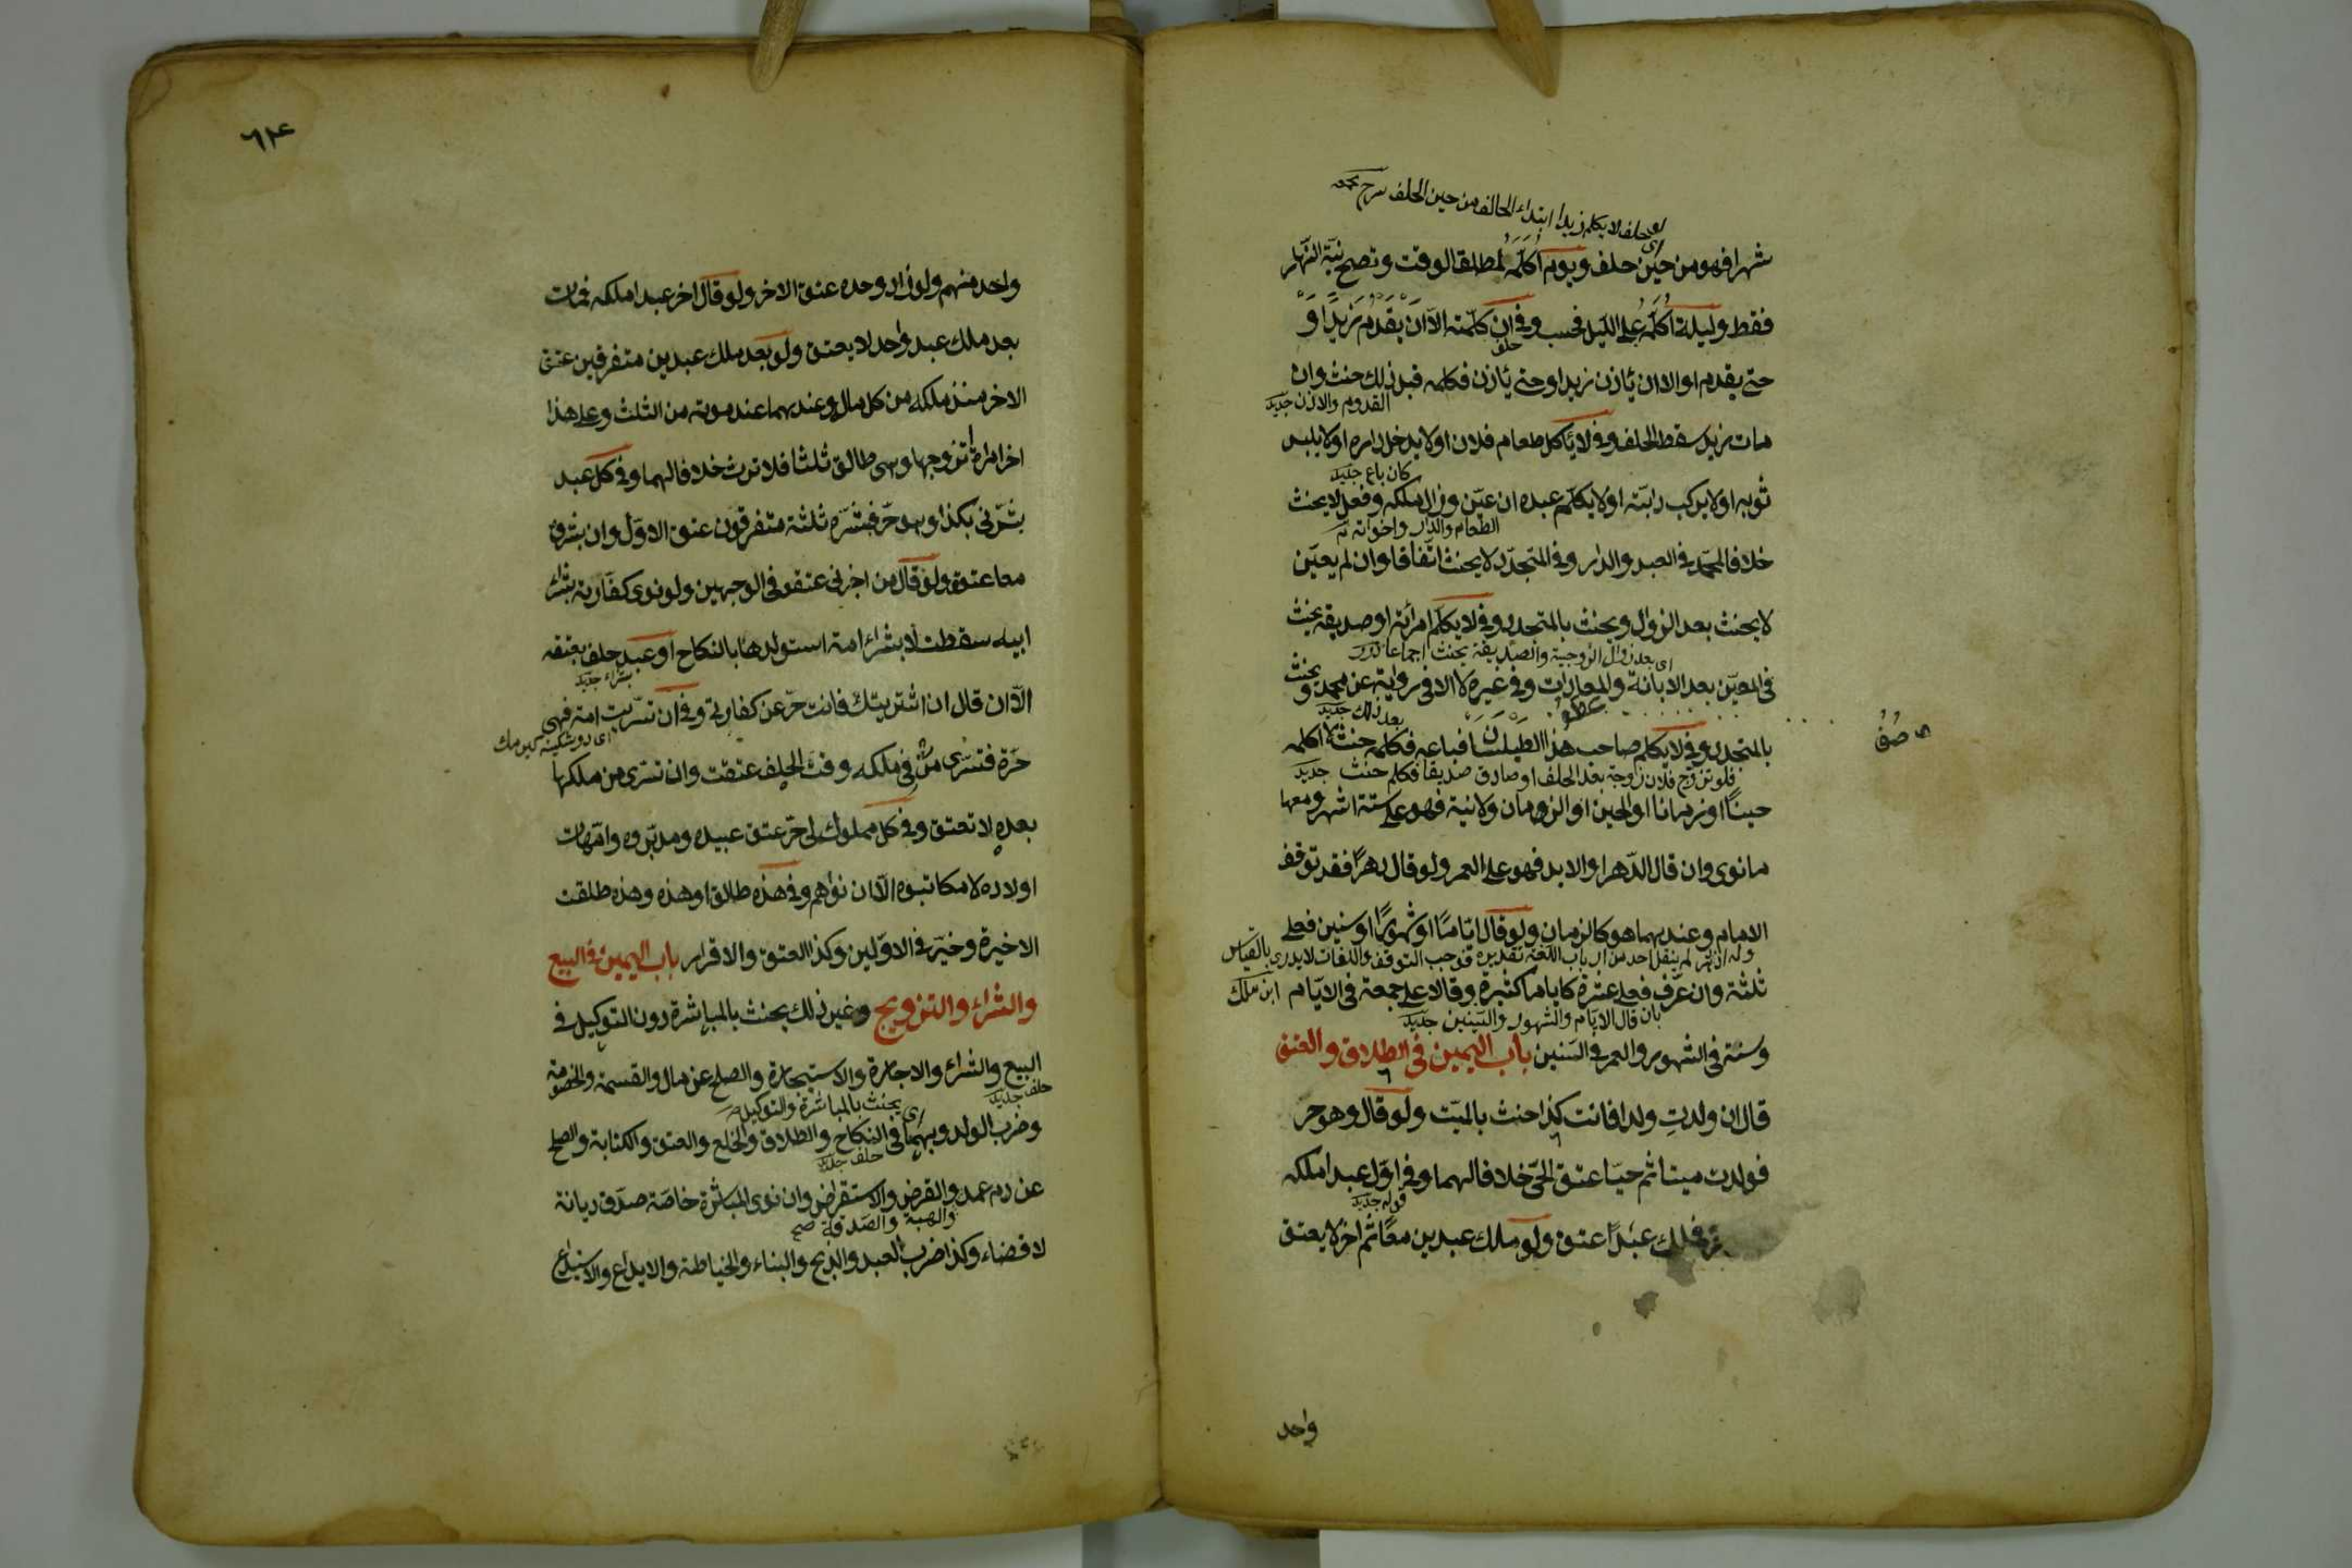 لو حلف لا يكلم زيدا ابتداء الحالف من حين الحلف
شهرا فهو من حين حلف ويوم اكلمه لمطلق الوقت وتصح نية النهار
فقط وليلة اكلمه على الليل فحسب وفى ان كلمته الا ان يقدم زيد او
حتى يقدم او الا ان ياذن زيد او حتى ياذن فكلمه قبل ذلك حنث وان
القدوم والاذن جديد
مات زيد سقط الحلف وفى لا ياكل طعام فلان او لا يدخل داره او لا يلبس
كان باع جديد
ثوبه او لا يركب دابته او لا يكلم عبده ان عين وزال ملكه وفعل لا يحنث
الطعام والدار واخواته
خلافا لمحمد فى العبد والدار وفى المتجدد لا يحنث اتفاقا وان لم يعين
لا يحنث بعد الزوال ويحنث بالمتجدد وفى لا يكلم امرأته او صديقه يحنث
اى بعد زوال الزوجية والصديقة يحنث اجماعا درر
فى المعين بعد الابانة والمعادات وفى غيره لا الا فى رواية عن محمد ويحنث
بعد ذلك جديد
بالمتجدد وفى لا يكلم صاحب هذا الطيلسان فباعه فكلمه حنث لا اكلمه
فلو تزوج فلان زوجة بعد الحلف او صادق صديقا فكلم حنث جديد
حينا او زمانا او الحين او الزمان ولا نية فهو على ستة اشهر ومعها
ما نوى وان قال الدهر او الابد فهو على العمر ولو قال دهرا فقد توقف
الامام وعندهما هو كالزمان ولو قال اياما او شهورا او سنين فعلى
لم ينقل احد من ارباب اللغة تقديره فوجب التوقف واللغات لا يدرى بالقياس
ثلثة وان عرف فعلى عشرة كاياما كثيرة وقالا على جمعة فى الايام
ابن ملك
بان قال الايام والشهور والسنين جديد
وسنة فى الشهور والعمر فى السنين باب اليمين فى الطلاق والعتق
قال ان ولدتِ ولدا فانت كذا حنث بالميت ولو قال وهو حر
فولدت ميتا ثم حيا عتق الحى خلافا لهما وفى اول عبد املكه
قوله جديد
فملك عبدا عتق ولو ملك عبدين معا ثم اخر لا يعتق
واحد
٦٣
واحد منهم ولو زاد وحده عتق الاخر ولو قال اخر عبد املكه فمات
بعد ملك عبد واحد لا يعتق ولو بعد ملك عبدين متفرقين عتق
الاخر منذ ملكه من كل مال وعندهما عند موته من الثلث وعلى هذا
اخر امراة اتزوجها وهى طالق ثلثا فلا ترث خلافا لهما وفى كل عبد
بشرنى بكذا وهو حر فبشره ثلثة متفرقون عتق الاول وان بشروه
معا عتقوا ولو قال من اخبرنى عتقوا فى الوجهين ولو نوى كفارته بشراء
ابيه سقطت لا بشراء امة استولدها بالنكاح او عبد حلف بعتقه
بشراء جديد
الا ان قال ان اشتريتك فانت حر عن كفارتى وفى ان تسريت امة فهى
حرة فتسرى من فى ملكه وقت الحلف عتقت وان تسرى من ملكها
بعده لا تعتق وفى كل مملوك لى حر عتق عبيده ومدبروه وامهات
اولاده لا مكاتبوه الا ان نواهم وفى هذه طالق او هذه وهذه طلقت
الاخيرة وخير فى الاولين وكذا العتق والاقرار باب اليمين فى البيع
والشراء والتزويج وغير ذلك يحنث بالمباشرة دون التوكيل فى
البيع والشراء والاجارة والاستيجارة والصلح عن مال والقسمة والخصومة
حلف جديد
اى يحنث بالمباشرة والتوكيل
وضرب الولد وبهما فى النكاح والطلاق والخلع والعتق والكتابة والصلح
حلف جديد
عن دم عمد والقرض والاستقراض وان نوى المباشرة خاصة صدق ديانة
والهبة والصدقة صح
لا قضاء وكذا ضرب العبد والذبح والبناء والخياطة والايداع والاستيداع